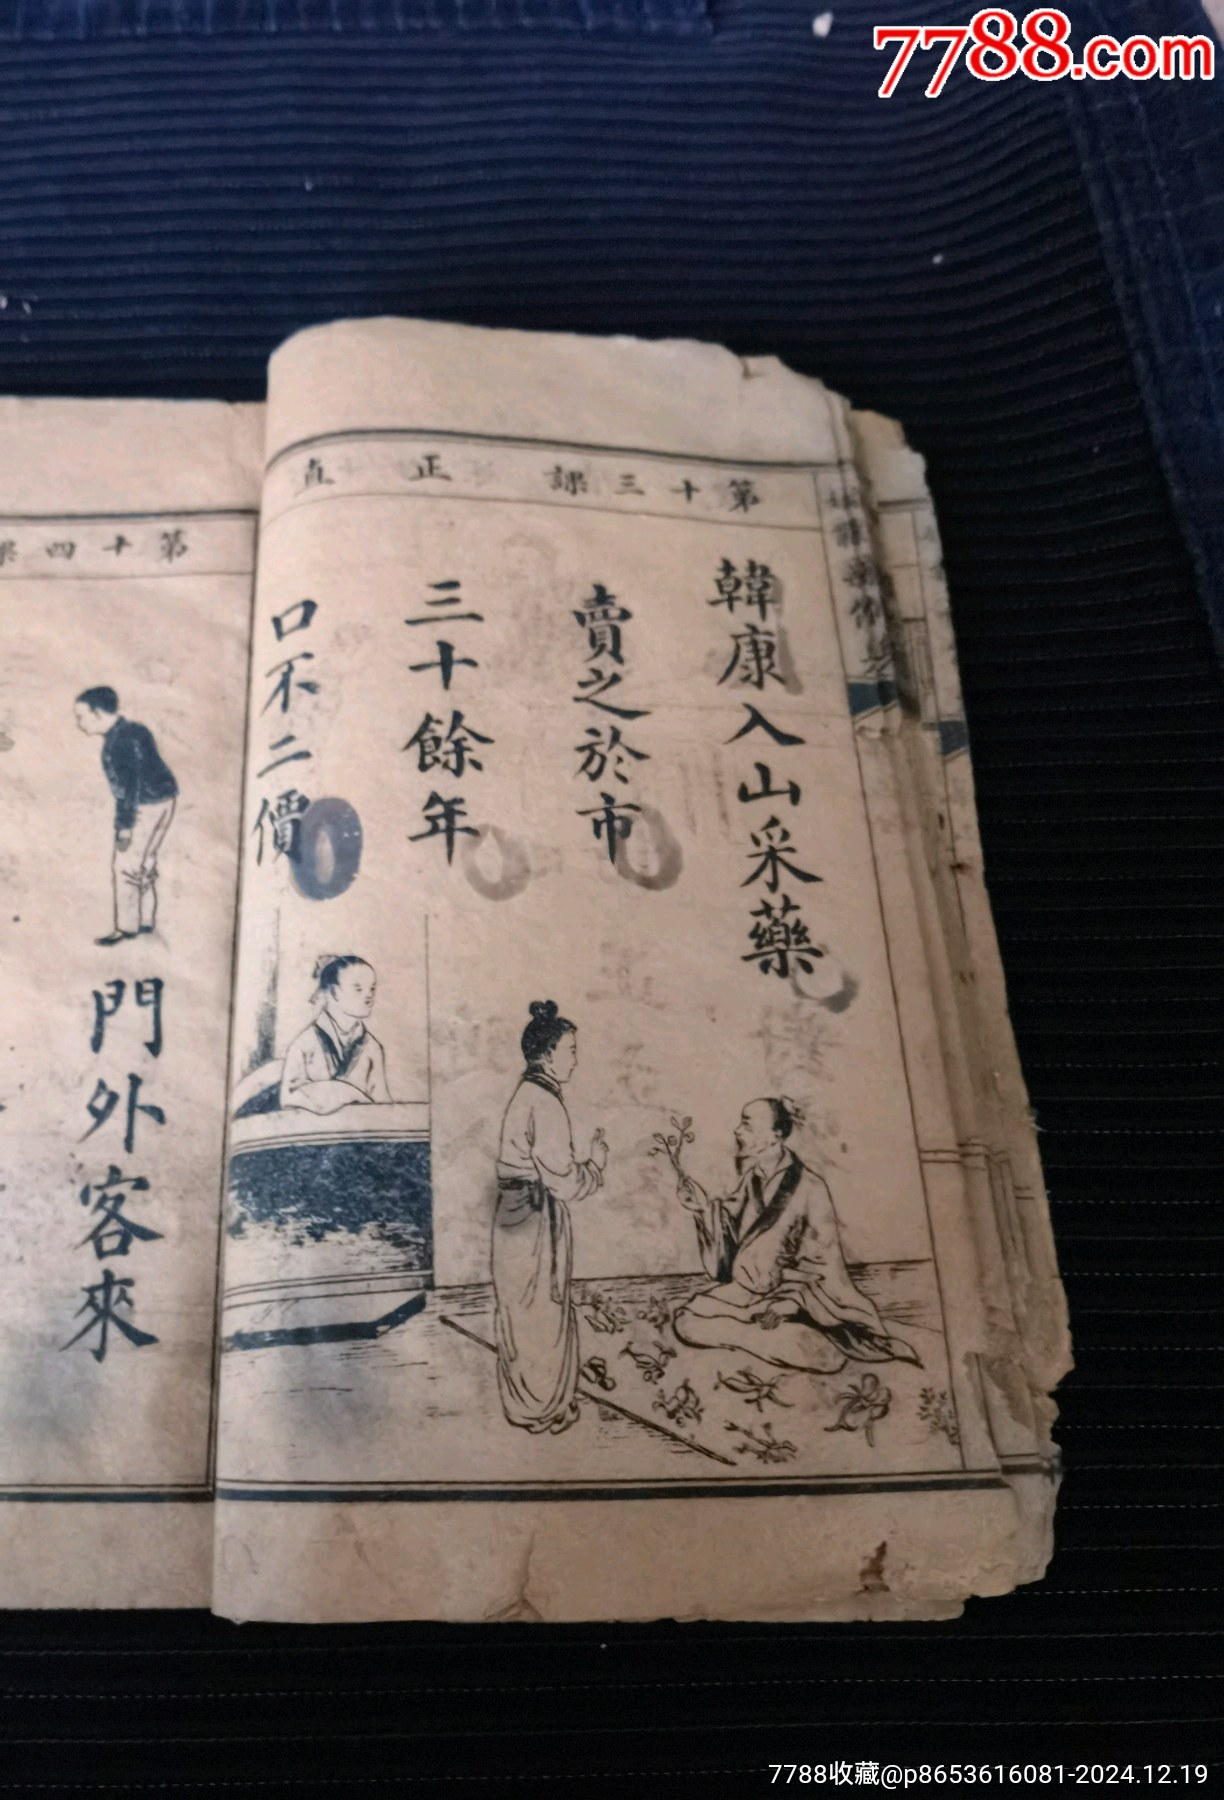 7788.com
第十三課 正直
韓康入山采藥
賣之於市
三十餘年
口不二價
第十四
門外客來
7788收藏@p8653616081-2024.12.19